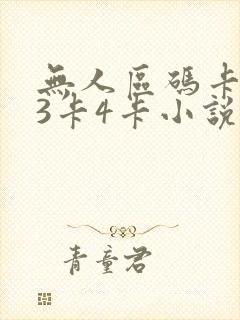 無人區碼卡
3卡4卡小說
青童君